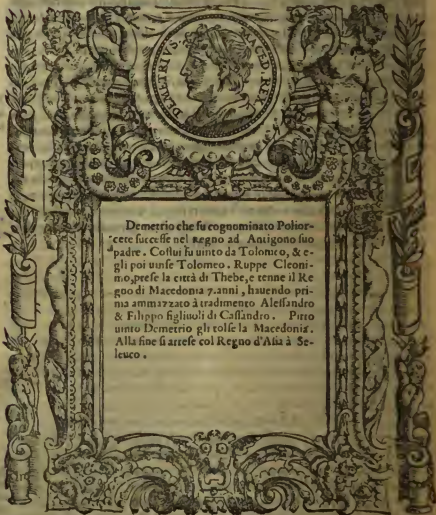 DEMETRIVS. MACED. REX
Demetrio che fu cognominato Polior-
cete successe nel Regno ad Antigono suo
padre. Costui fu uinto da Tolomeo, & e-
gli poi uinse Tolomeo. Ruppe Cleoni-
mo, prese la città di Thebe, e tenne il Re
gno di Macedonia 7. anni, hauendo pri-
ma ammazzato à tradimento Alessandro
& Filippo figliuoli di Cassandro. Pirro
uinto Demetrio gli tolse la Macedonia.
Alla fine si arrese col Regno d'Asia à Se-
leuco.